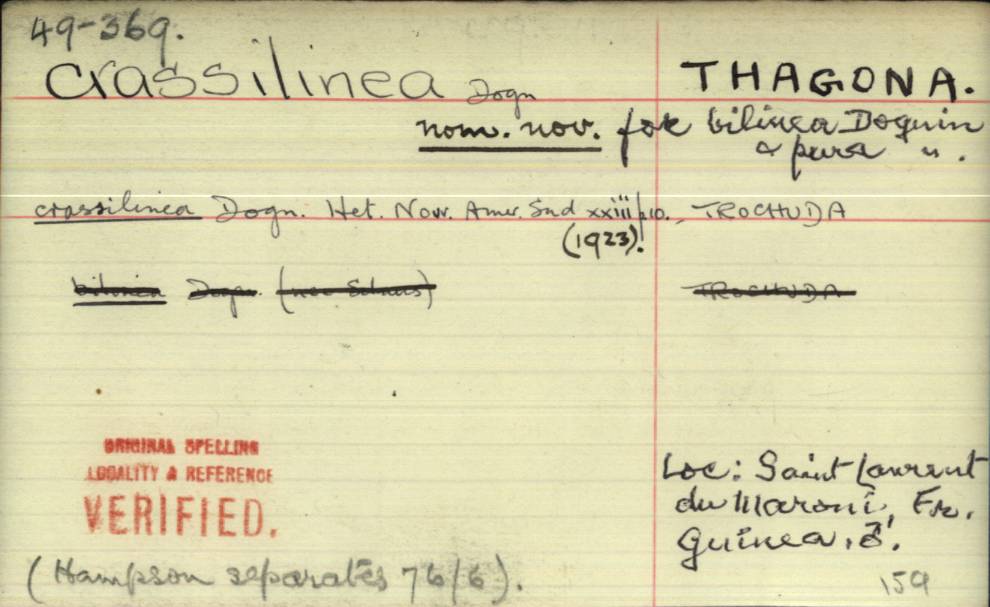 49-369.
crassilinea Dogn THAGONA.
nom. nov. for bilinea Dognin
& pura ".
crassilinea Dogn. Het. Nouv. Amer. Sud xxiii p.10. TROCHUDA
(1923).
bilinea Dogn. (nec Schaus) TROCHUDA
ORIGINAL SPELLING
LOCALITY & REFERENCE
VERIFIED.
Loc: Saint Laurent
du Maroni, Fr.
Guinea. ♂.
(Hampson separates 76/6).
159